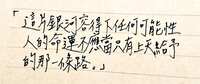 「這片銀河容得下任何可能性
人的命運不應當只有上天給予
的那一條路。」